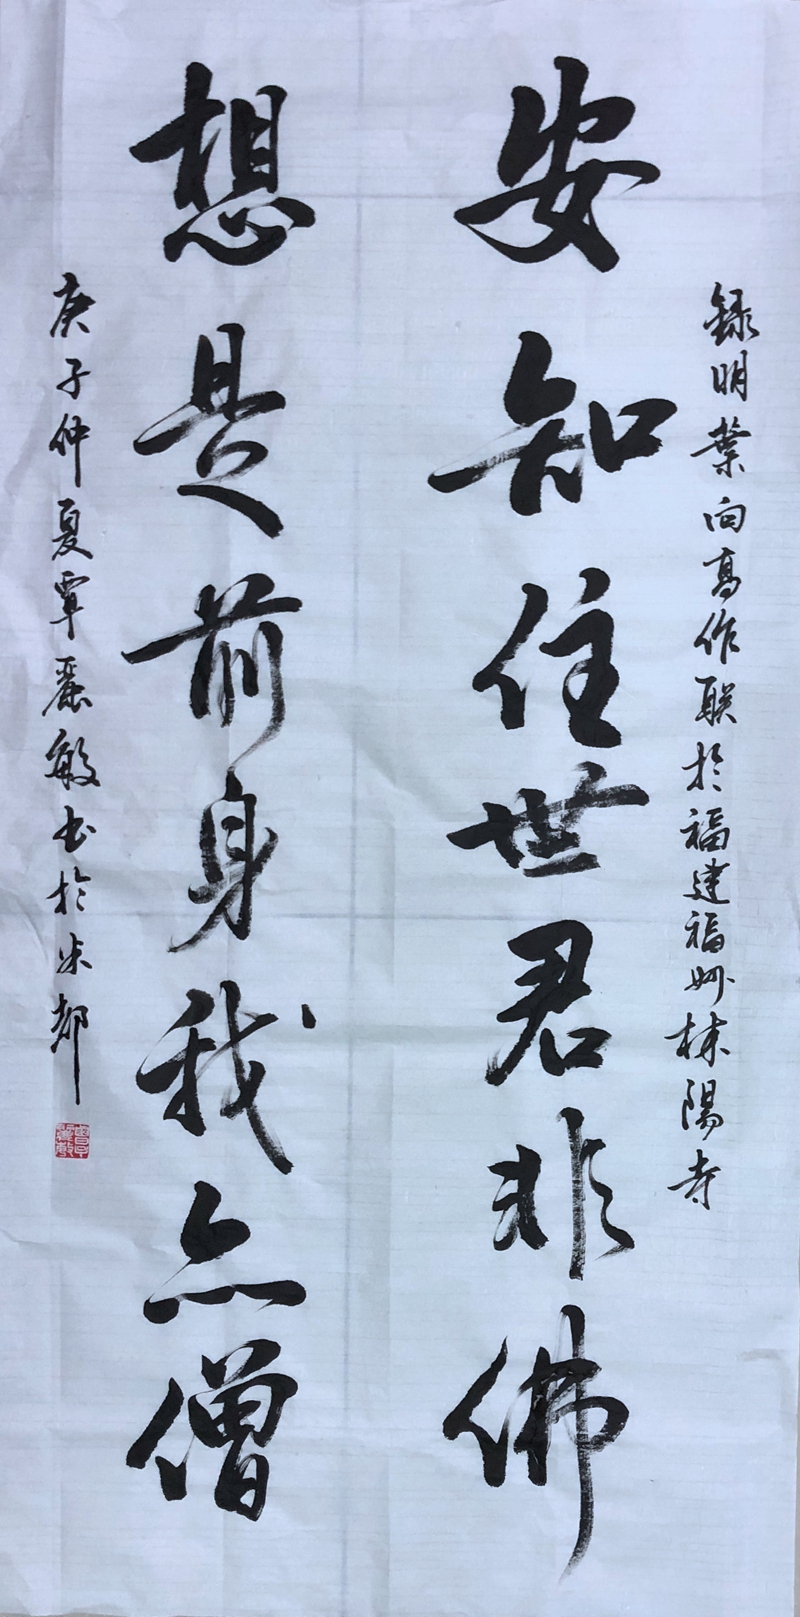 録明葉向高作联於福建福州林陽寺
安知住世君非佛
想是前身我亦僧
庚子仲夏覃麗敏书於米都